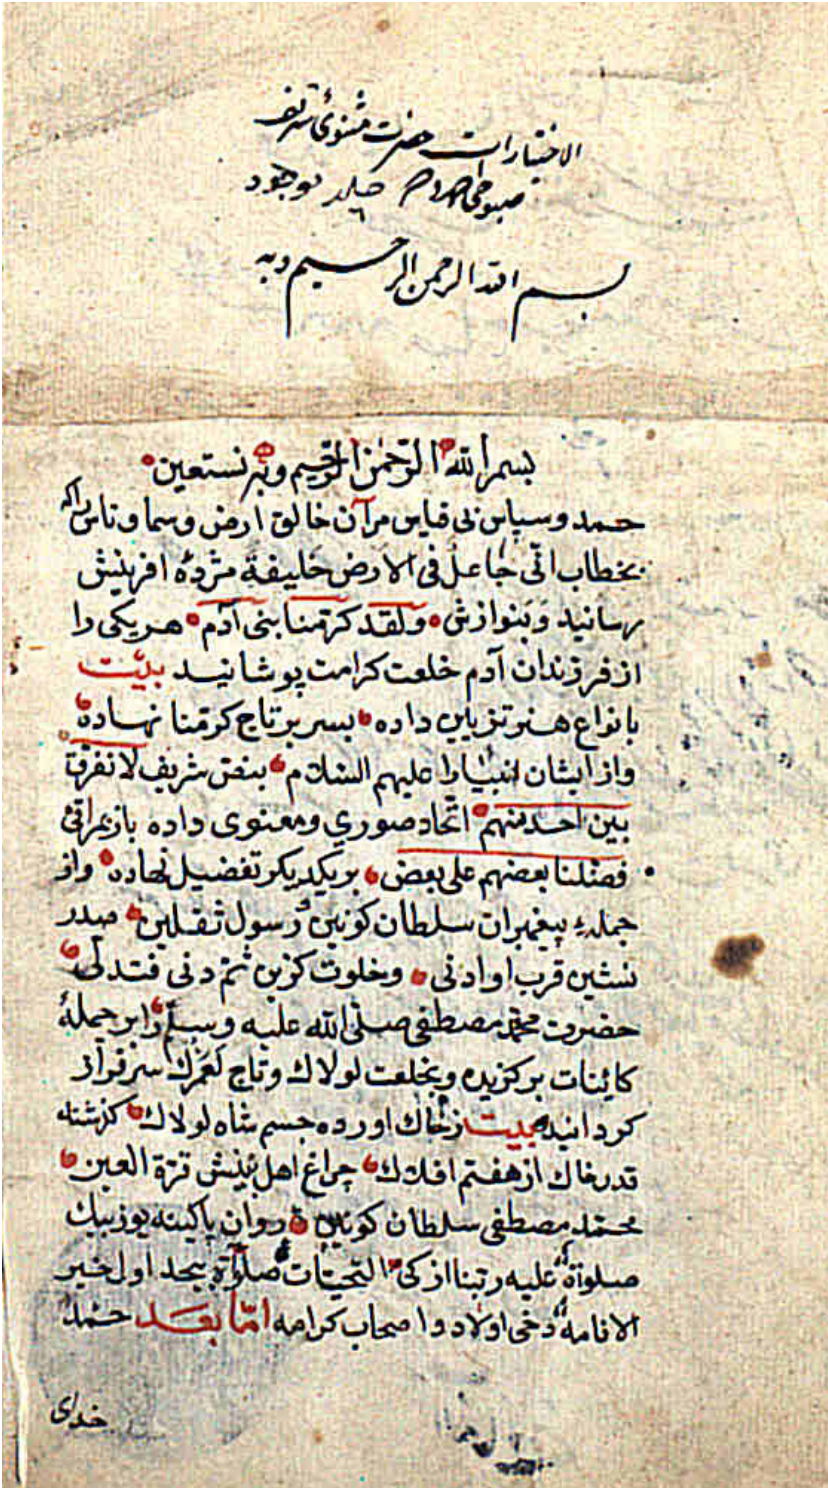 الاختیارات حضرت مثنوئ شریف
صبوحی جلد موجود
٦
بسم الله الرحمن الرحیم وبه
بسم الله الرّحمن الرّحیم وبه نستعین
حمد وسپاس بی قیاس مرآن خالق ارض وسما وناس راکه
بخطاب انّی جاعلٌ فی الارض خلیفة مژدهٔ افرینش
رسانید وبنوازش ولقد کرّمنا بنی آدم هر یکی را
از فرزندان آدم خلعت کرامت پوشانید بیت
بانواع هنر تزیین داده بسر بر تاج کرّمنا نهاده
واز ایشان انبیارا علیهم السّلام بنصّ شریف لا نفرّق
بین احد منهم اتّحاد صوری ومعنوی داده باز
فضّلنا بعضهم علی بعض بر یکدیکر تفضیل نهاده واز
جملهء پیغمبران سلطان کونین ورسول ثقلین صدر
نشین قرب او ادنی وخلوت کزین ثمّ دنی فتدلّی
حضرت محمّد مصطفی صلّی الله علیه وسلّم را بر جملهٔ
کاینات برکزیده وبخلعت لولاك وتاج لعمرك سرفراز
کردانید بیت زخاك اورده جسم شاه لولاك کذشته
قدر خاك از هفتم افلاك چراغ اهل بینش قرّة العین
محمّد مصطفی سلطان کونین روان
صلوة علیه ربّنا ازکی التحیّات صلوة بیحد اول خیر
الانامه دخی اولاد واصحاب کرامه امّا بعد حمد
خدای